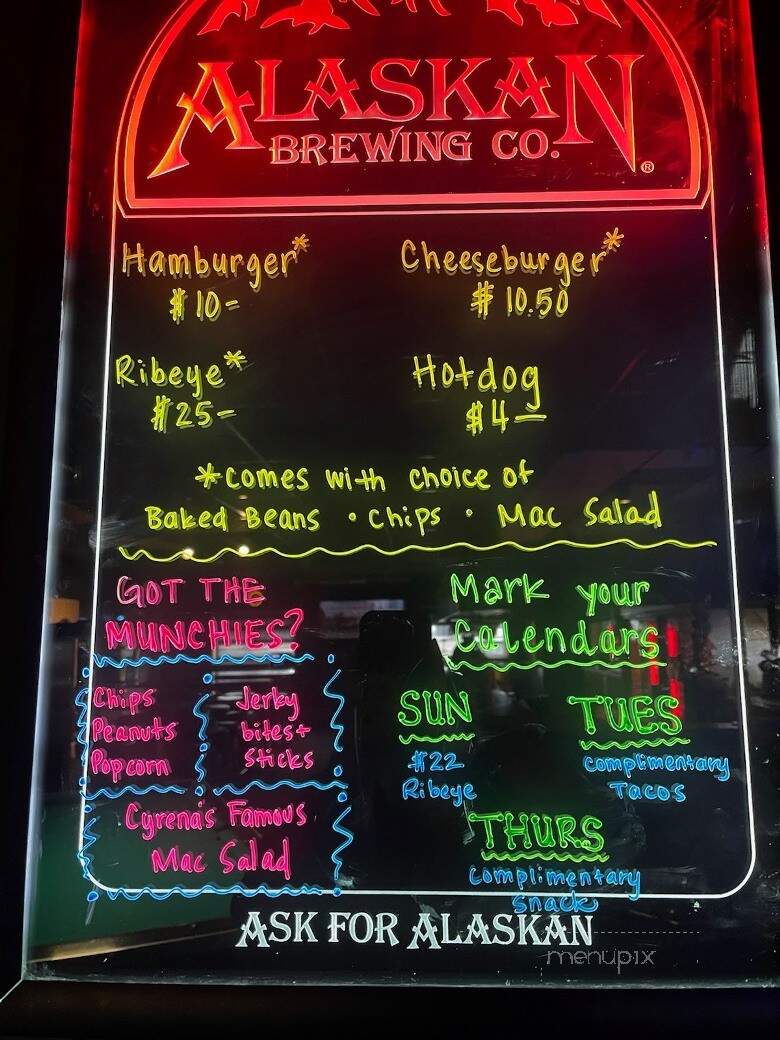 ALASKAN
BREWING CO.®
Hamburger*
$10-
Cheeseburger*
$10.50
Ribeye*
$25-
Hotdog
$4-
*comes with choice of
Baked Beans • Chips • Mac Salad
GOT THE
MUNCHIES?
Chips
Peanuts
Popcorn
Jerky
bites+
sticks
Cyrena's Famous
Mac Salad
Mark your
Calendars
SUN
$22
Ribeye
TUES
complimentary
Tacos
THURS
complimentary
snack
ASK FOR ALASKAN
menupix